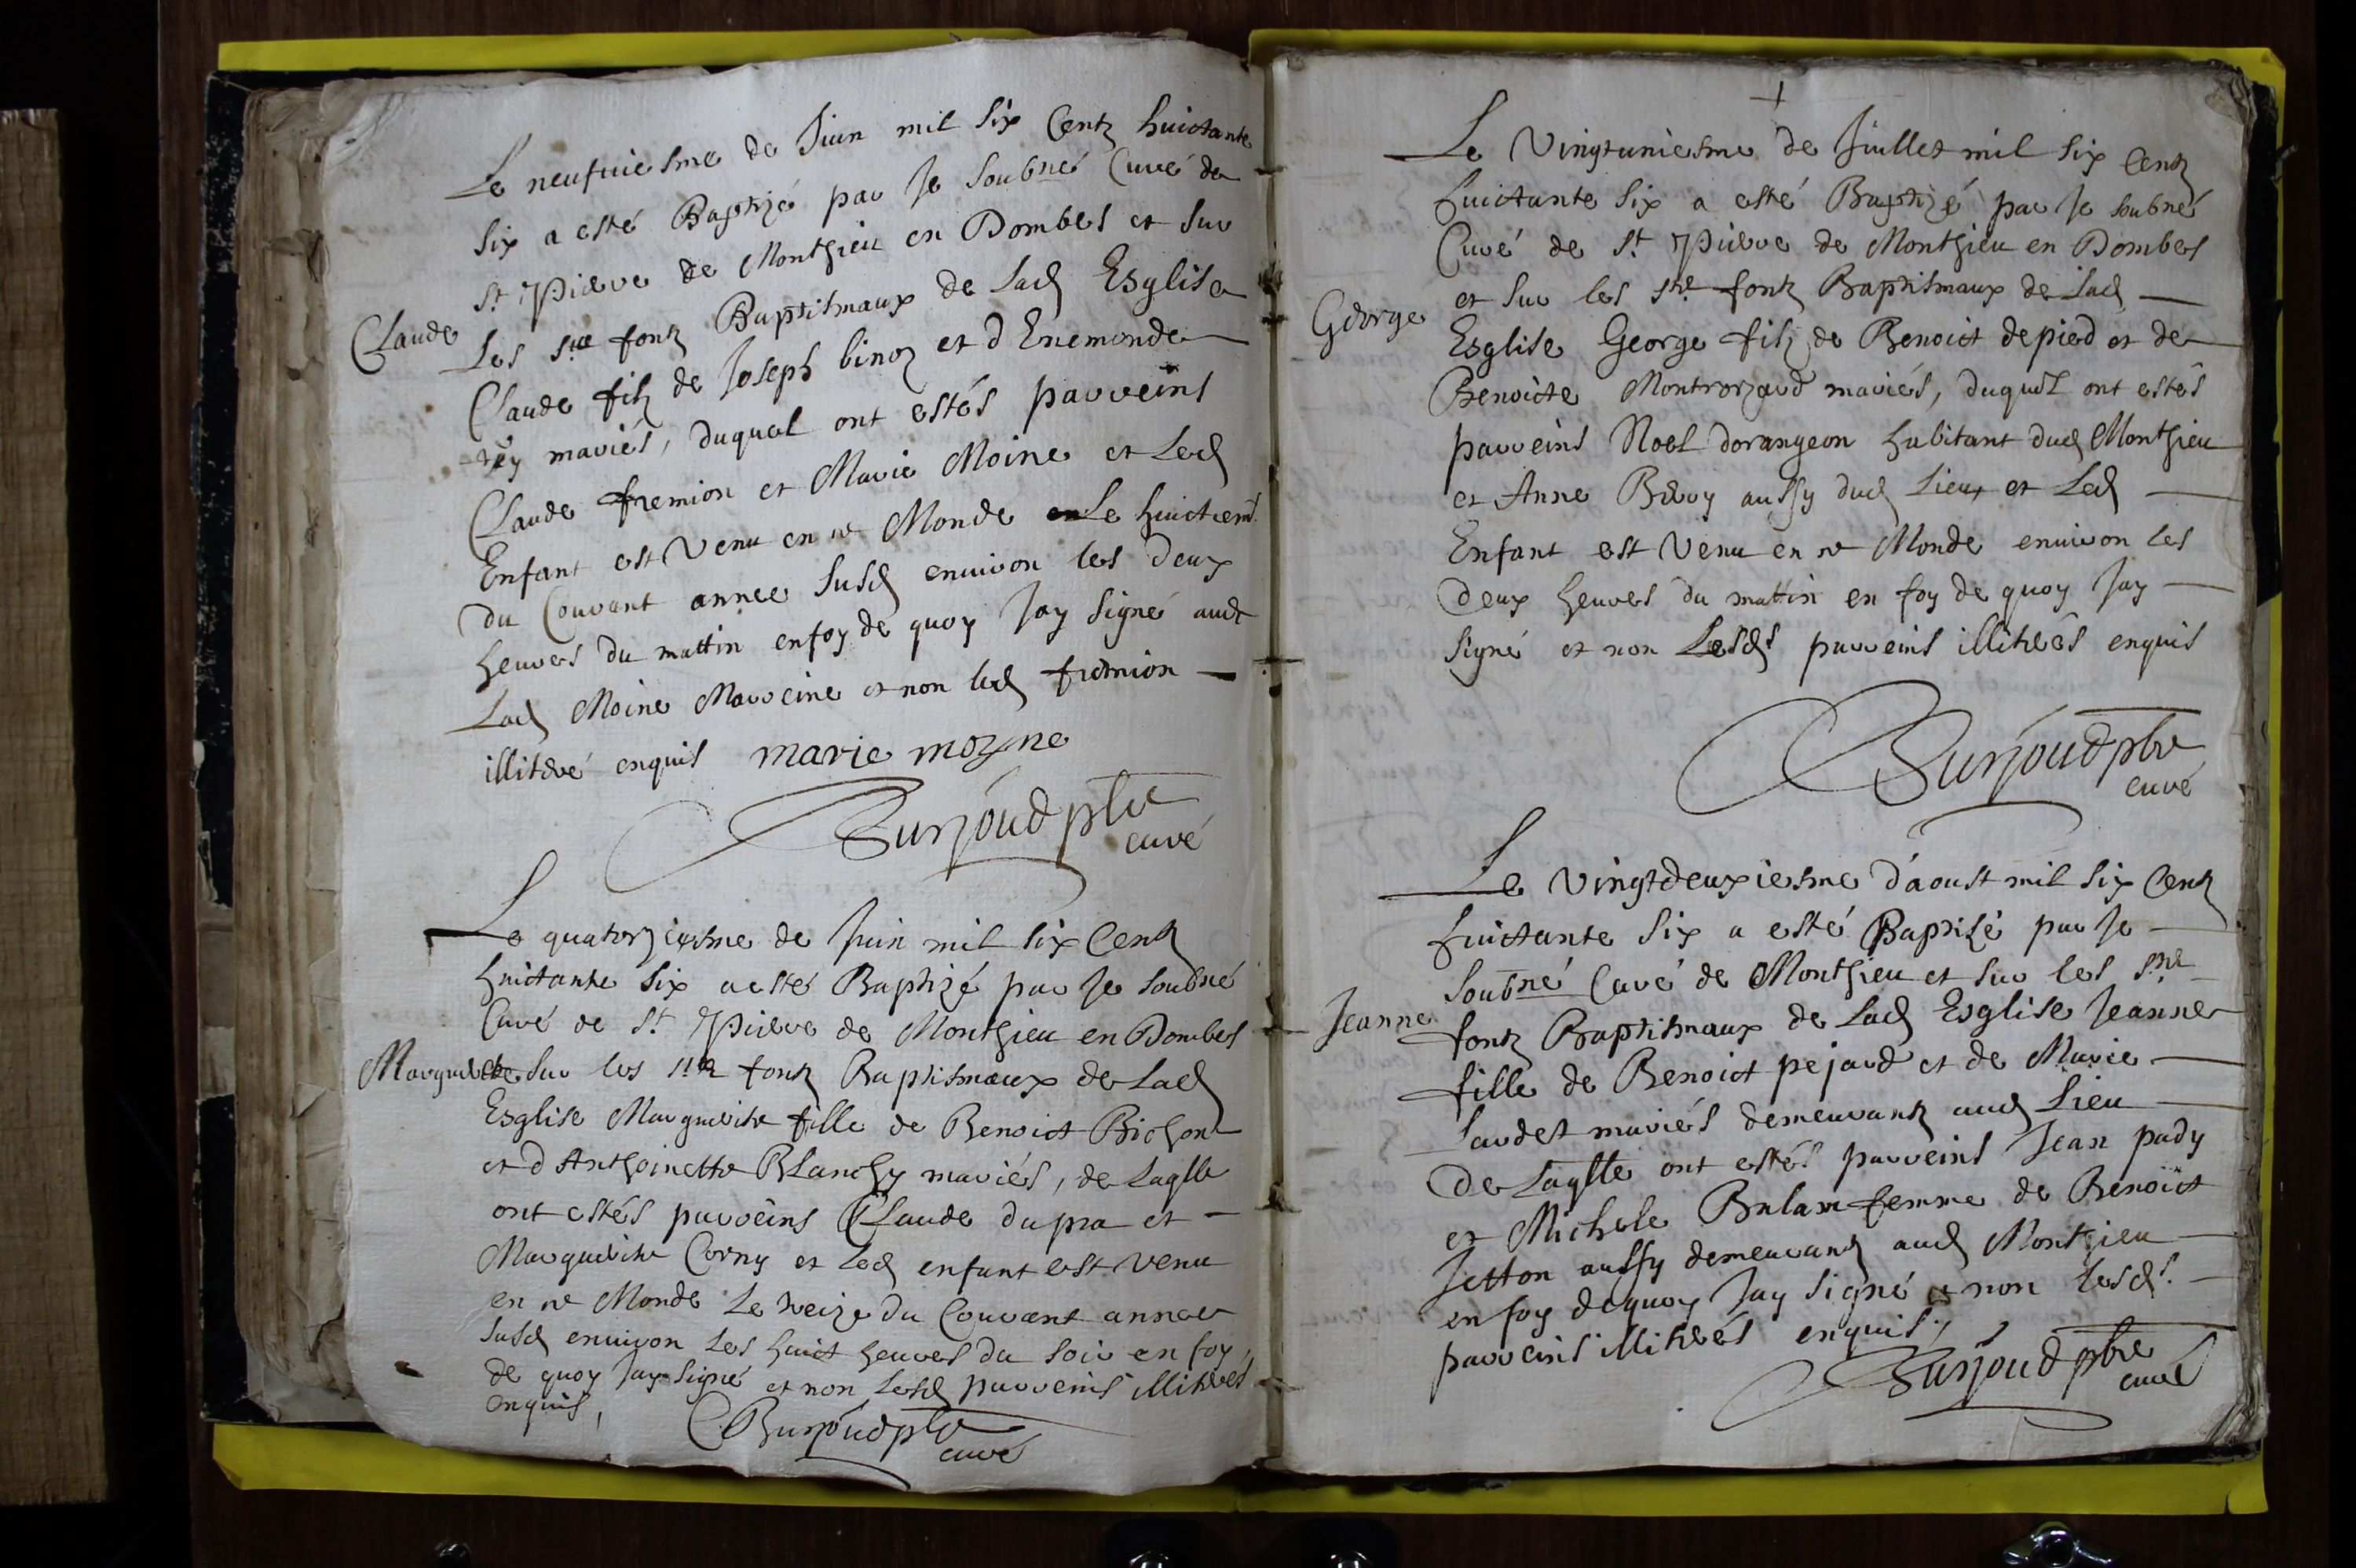 Le neufuiesme de Jiun mil six Centz huictante
six a esté Baptizé par Je soubné Curé de
St. Pierre de Monthieu en Dombes et sur
Claude
Les stes fontz Baptismaux de Lad Esglise
Claude filz de Joseph binoz et d Enemonde
mariés, duquel ont estés parreins
Claude fremion et Marie Moine et Led
Enfant est Venu en ce Monde Le huictiem
du Courant annee susd enuiron les deux
heures du mattin en foy de quoy Jay signé auec
Lad Moine Marreine et non led fremion
illiteré enquis marie moyne
Burjoud pbr
curé
Le quatorziesme de Juin mil six Centz
huictante six a esté Baptizé par Je soubné
Curé de St. Pierre de Monthieu en Dombes
Marguerite
et sur les stes fontz Baptismaux de Lad
Esglise Marguerite fille de Benoict Bichon
et d Anthoinette Blanchy mariés, de Laqlle
ont estés parreins Claude dupra et
Marguerite Corny et Led enfant est Venu
en ce Monde Le treize du Courant annee
susd enuiron Les huict heures du soir en foy
de quoy Jay signé et non Lesd parreins illiterés
enquis,
Burjoud pbr
curé
Le Vingtuniesme de Juillet mil six Centz
huictante six a esté Baptizé par Je soubné
Curé de St. Pierre de Monthieu en Dombes
et sur les stes fontz Baptismaux de Lad
George
Esglise George filz de Benoict depied et de
Benoicte mariés, duquel ont estés
parreins Noel dorangeon habitant dud Monthieu
et Anne Beroy aussy dud Lieu et Led
Enfant est Venu en ce Monde enuiron les
deux heures du mattin en foy de quoy Jay
signé et non Lesds parreins illiterés enquis
Burjoud pbr
curé
Le Vingtdeuxiesme d'aoust mil six Centz
huictante six a esté Baptisé par Je
soubné Curé de Monthieu et sur les stes
Jeanne
fontz Baptismaux de Lad Esglise Jeanne
fille de Benoict pejard et de Marie
Lardet mariés demeurantz aud Lieu
De Laqlle ont estés parreins Jean pady
et Michele femme de Benoict
Jetton aussy demeurantz aud Monthieu
en foy de quoy Jay signé et non lesds.
parreins illiterés enquis,
Burjoud pbre
curé